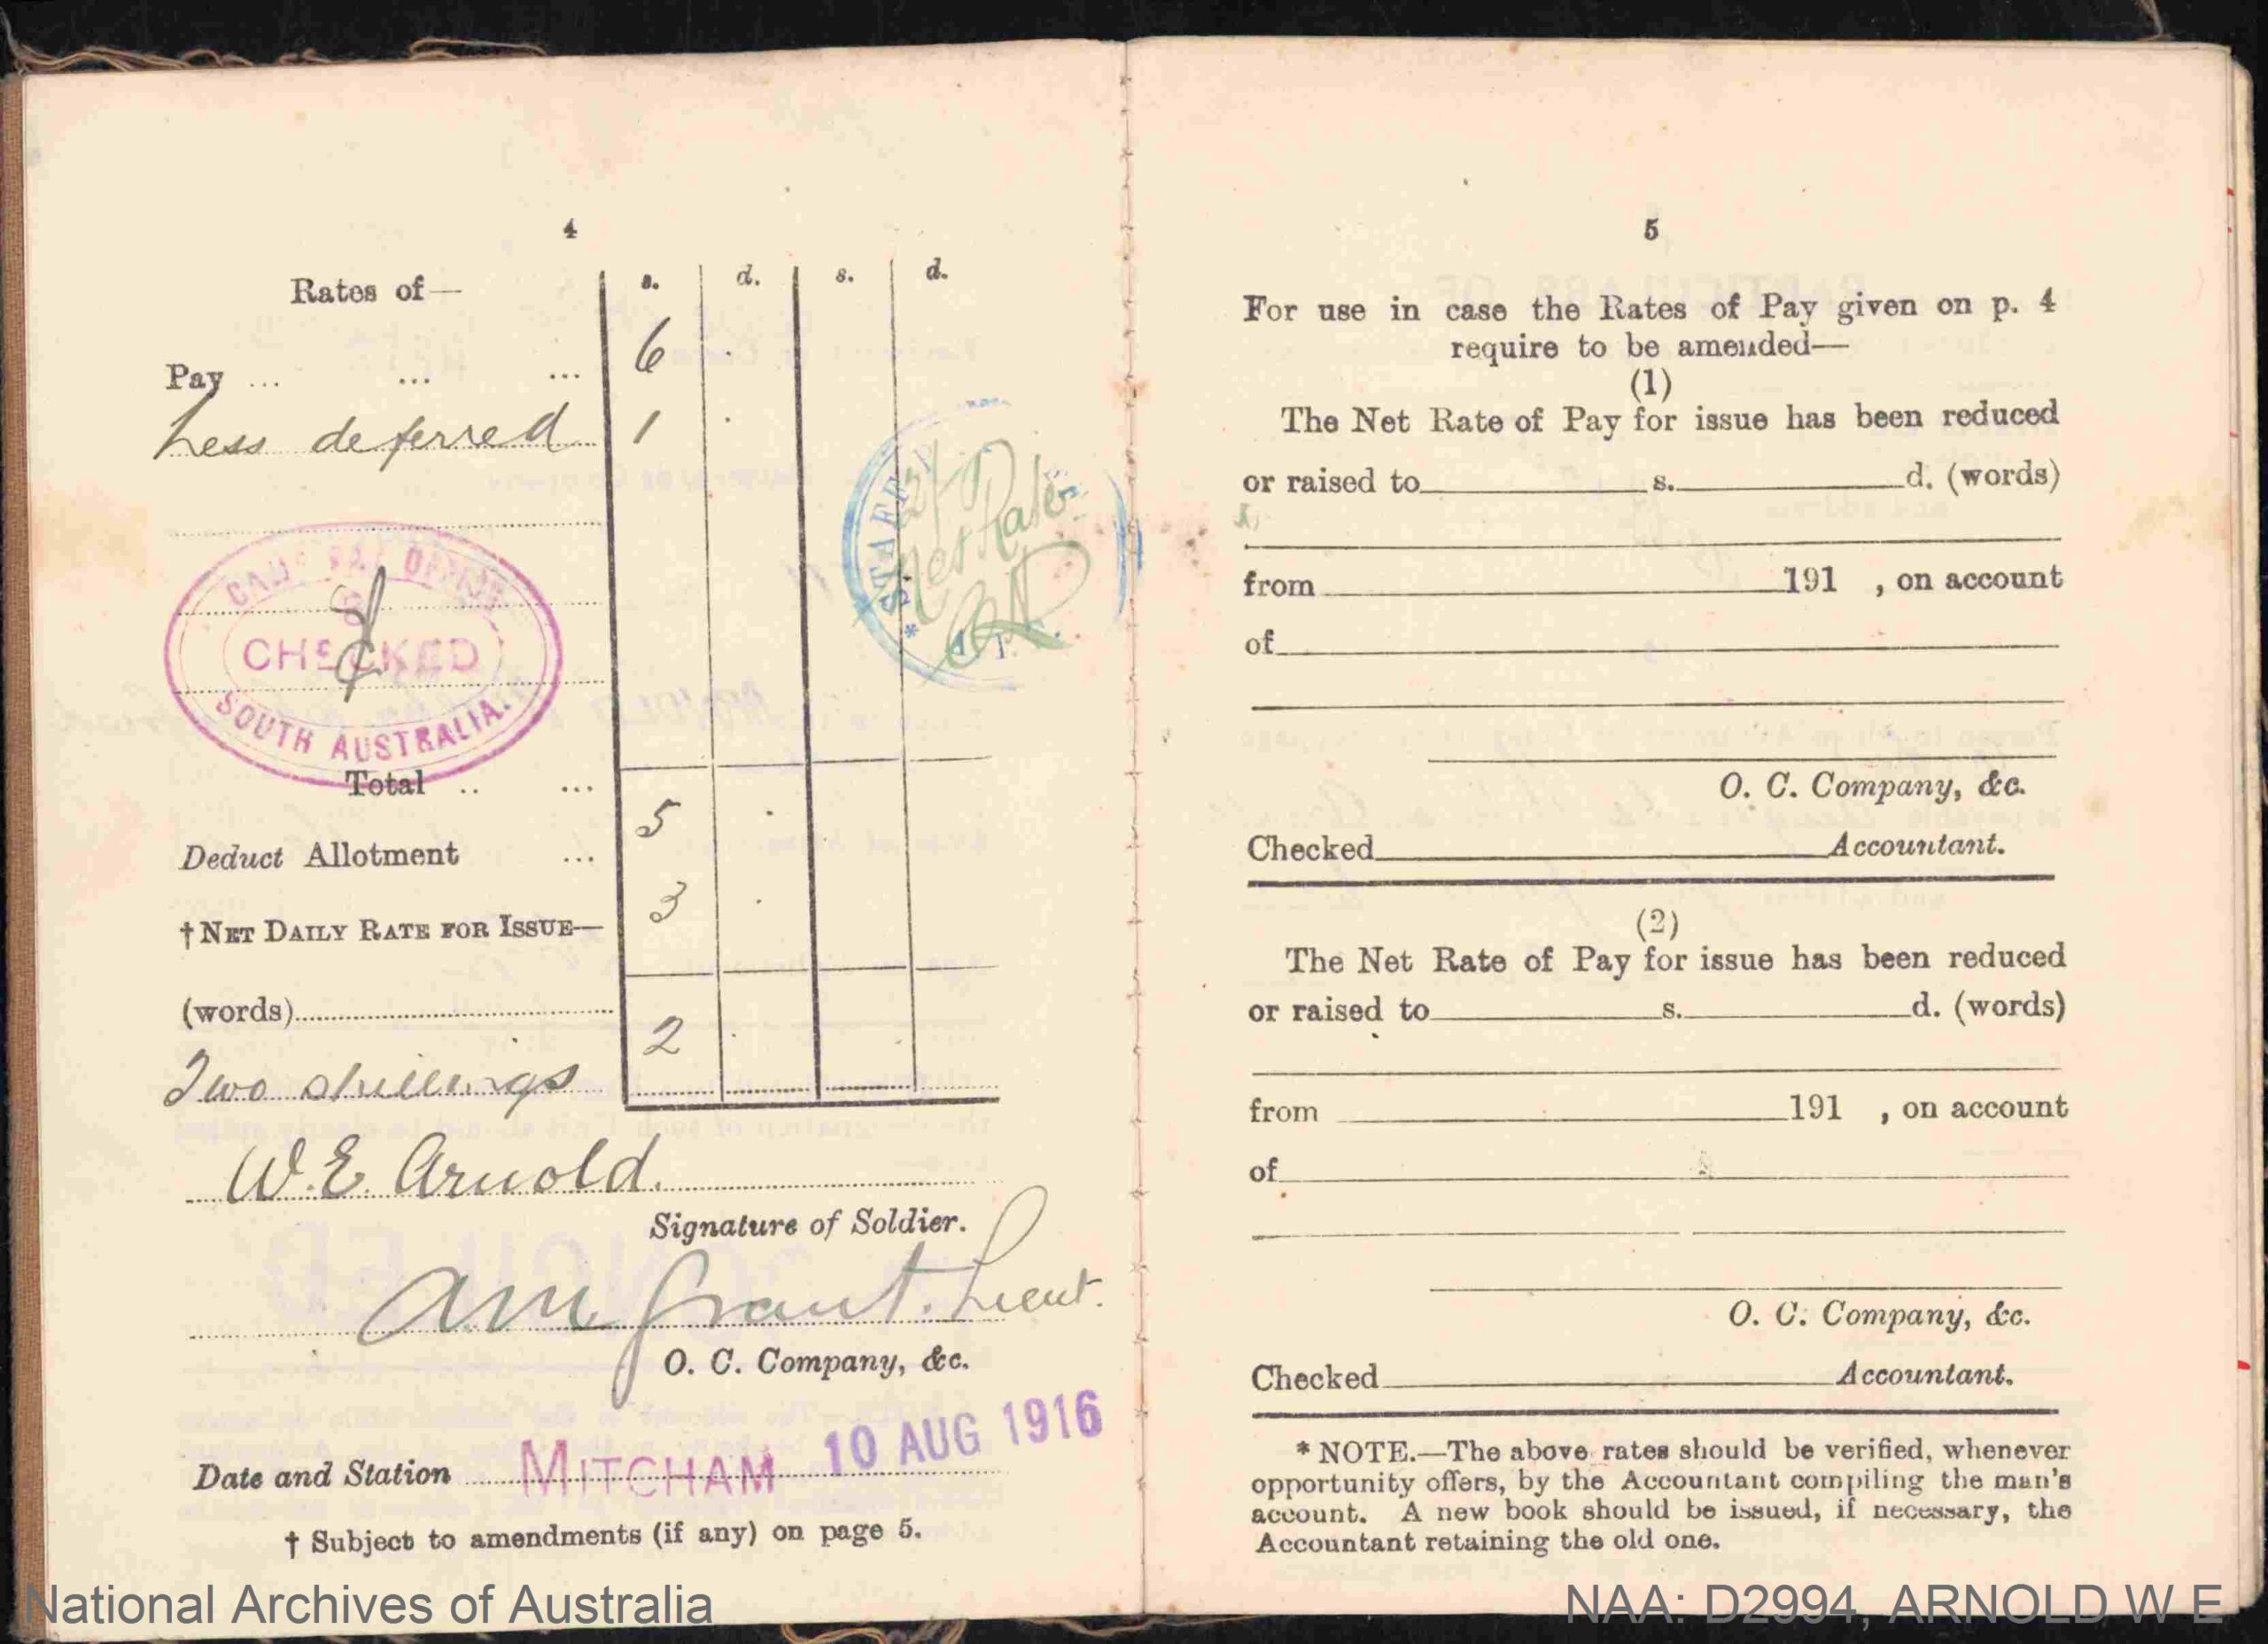 4
Rates of— s. d. s. d.
Pay ... ... ... 6 .
Less deferred 1 .
STAFF
2/-
Net Rate
CAMP PAY OFFICE
CHECKED
SOUTH AUSTRALIA.
Total .. ... 5 .
Deduct Allotment ... 3 .
† NET DAILY RATE FOR ISSUE—
(words) 2 .
Two shillings
W. E. Arnold.
Signature of Soldier.
A M Grant. Lieut.
O. C. Company, &c.
Date and Station MITCHAM 10 AUG 1916
† Subject to amendments (if any) on page 5.
5
For use in case the Rates of Pay given on p. 4
require to be amended—
(1)
The Net Rate of Pay for issue has been reduced
or raised to s. d. (words)
from 191 , on account
of
O. C. Company, &c.
Checked Accountant.
(2)
The Net Rate of Pay for issue has been reduced
or raised to s. d. (words)
from 191 , on account
of
O. C. Company, &c.
Checked Accountant.
* NOTE.—The above rates should be verified, whenever
opportunity offers, by the Accountant compiling the man's
account. A new book should be issued, if necessary, the
Accountant retaining the old one.
National Archives of Australia
NAA: D2994, ARNOLD W E